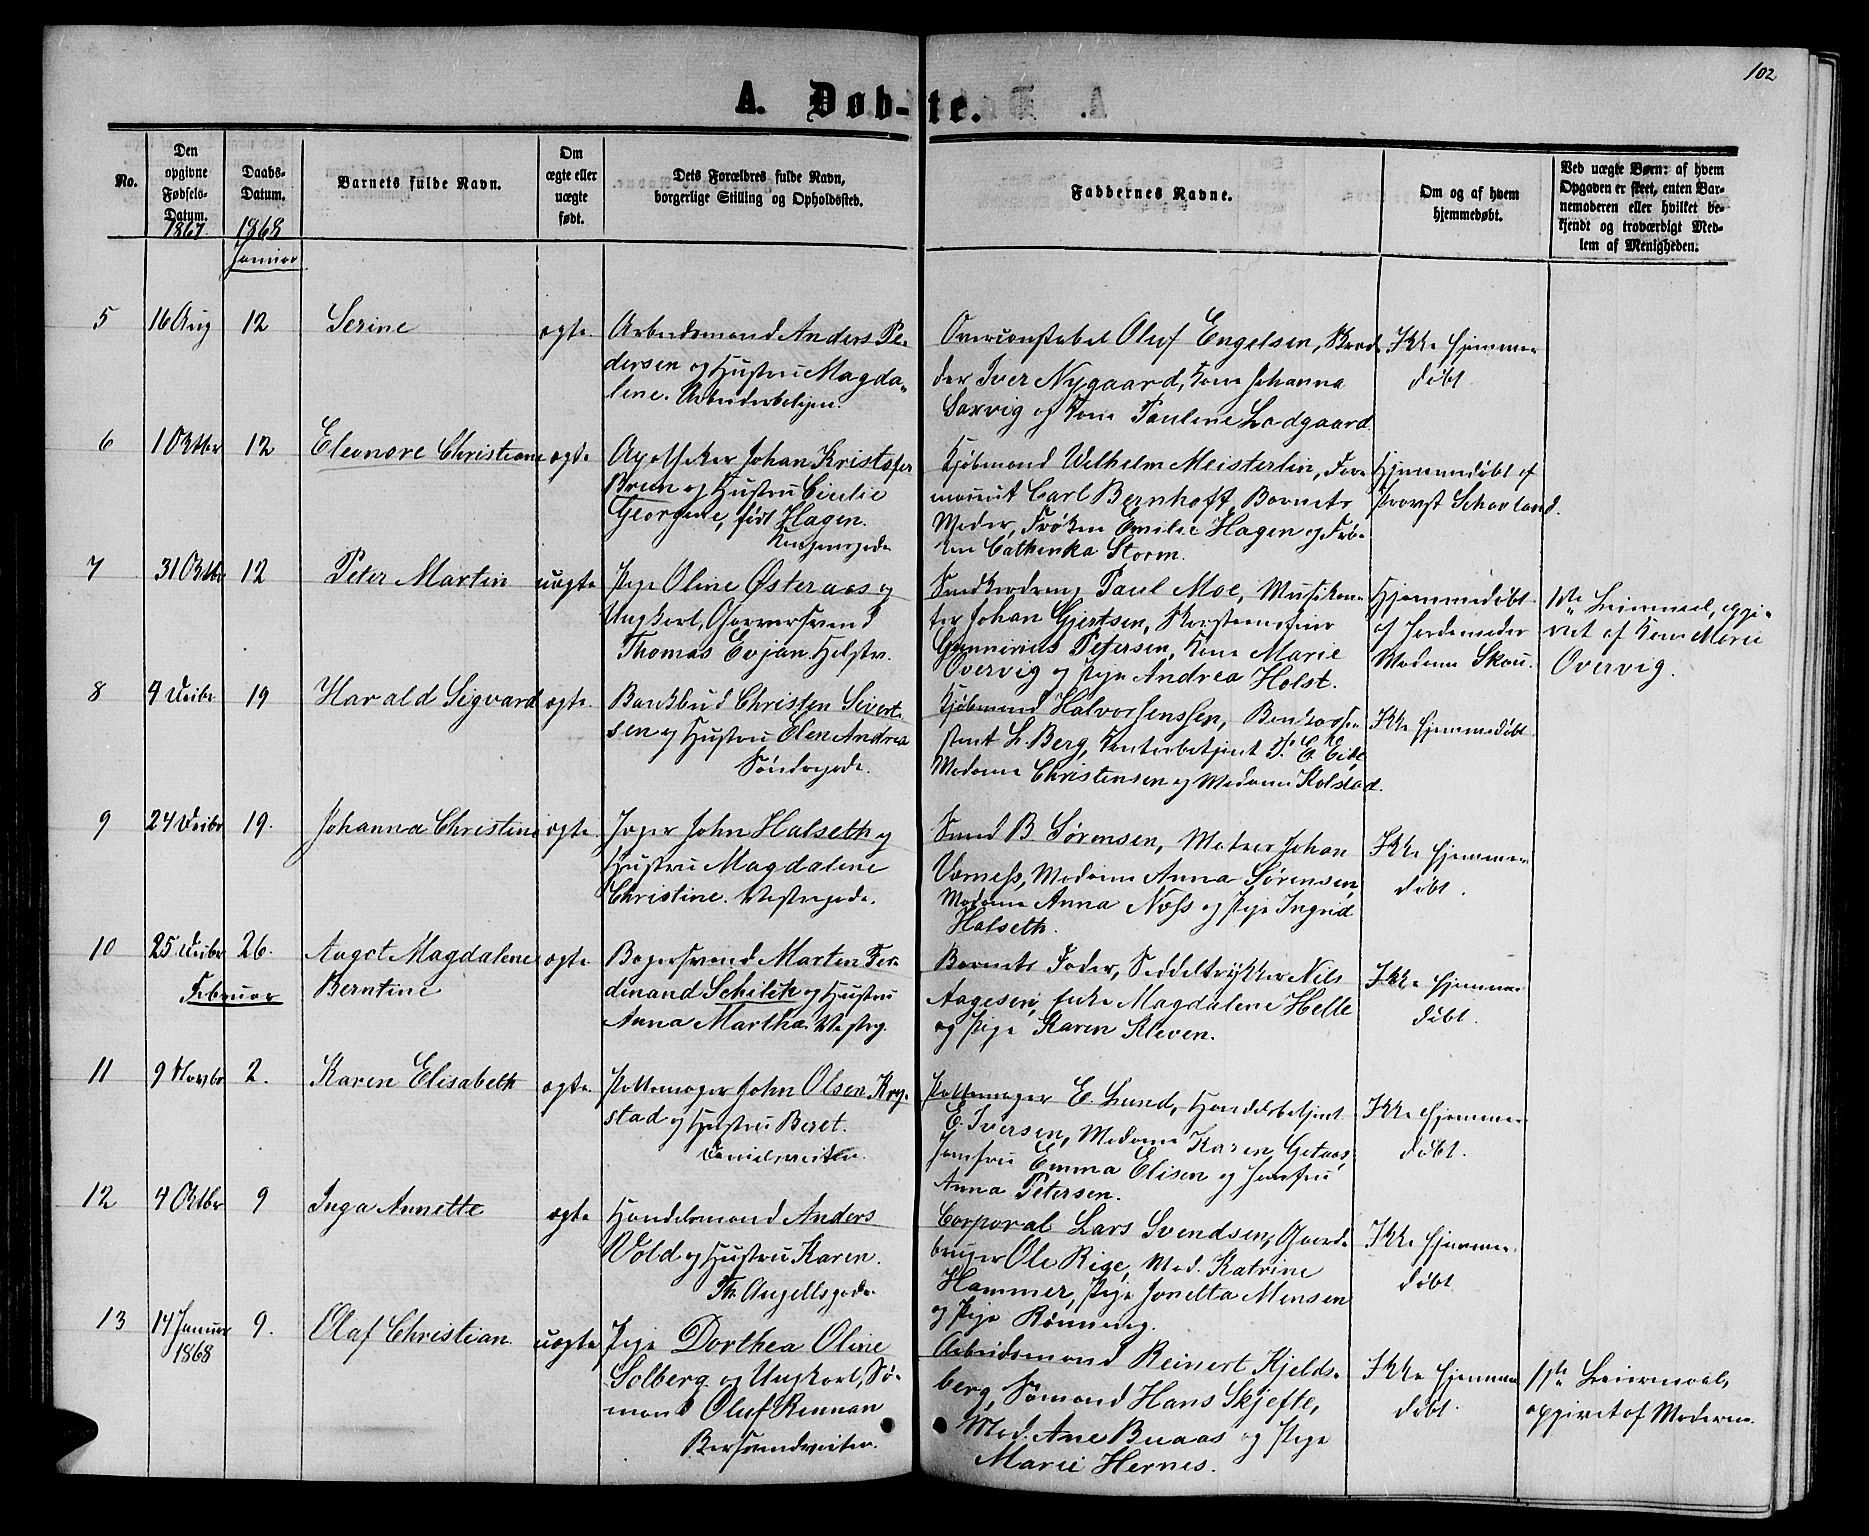 102
A. Døb-te.
No.
Den opgivne Fødsels-Datum.
Daabs-Datum.
Barnets fulde Navn.
Om ægte eller uægte født.
Dets Forældres fulde Navn, borgerlige Stilling og Opholdssted.
Faddernes Navne.
Om og af hvem hjemmedøbt.
Ved uægte Børn: af hvem Opgaven er skeet, enten Barnemoderen eller hvilket bekjendt og troværdigt Medlem af Menigheden.
1867 1868
Januar
5 16 Aug 12 Serine ægte
Arbeidsmand Anders Pe-
dersen og Hustru Magda-
lene.
Overconstabel Oluf Engelsen,
Iver Nygaard, Kone Johanna
Saxvig og Kone Pauline Ladgaard
Ikke hjemme
døbt.
6 1 Oktbr 12 Eleonore Christiane ægte
Apotheker Johan Kristofer
Brun og Hustru Cecilie
Georgine, født Hagen.
Kjøbmand Wilhelm Meisterlin,
Carl Bernhoft, Barnets
Moder, Frøken Emilie Hagen og Frø-
ken Cathinka Storm.
Hjemmedøbt af
Provst Schavland.
7 31 Oktbr 12 Peter Martin uægte
Pige Oline Østeraas og
Ungkarl, Garversvend
Thomas Evjan.
Paul Moe, Musikan-
ter Johan Gjertsen, Skorsteensfeier
Gunnerius Petersen, Kone Marie
Overvig og Pige Andrea Holst.
Hjemmedøbt
af Jordemoder
Madame Skau.
1ste Leiermaal, opgi-
vet af Kone Marie
Overvig.
8 4 Decbr 19 Harald Sigvard ægte
Bankbud Christen Sivert-
sen og Hustru Elen Andrea
Søndregade.
Kjøbmand Halvorsenssen,
L. Berg, Kontorbetjent T. E. Eide,
Madame Christensen og Madame Kolstad.
Ikke hjemmedøbt
9 24 Decbr 19. Johanna Christine ægte
John Halseth og
Hustru Magdalene
Christine. Vestregade.
Smed B. Sørensen, Matros Johan
Værness, Madame Anna Sørensen,
Madame Anna Næss og Pige Ingrid
Halseth.
Ikke hjemme
døbt.
10 25 Decbr 26. Aagot Magdalene ægte
Berntine
Bagersvend Martin Fer-
dinand Schilck og Hustru
Anna Martha. Vestrg.
Barnets Fader, Seddeltrykker Nils
Aagesen, Enke Magdalene Helle
og Pige Karen Kleven.
Ikke hjemme
døbt.
Februar
11 9 Novbr 2. Karen Elisabeth ægte
Pottemager John Olsen Kry-
stad og Hustru Beret.
Danielsveiten
Pottemager E. Lund, Handelsbetjent
E. Iversen, Madame Karen Getaas,
Jomfru Emma Elisen og Jomfru
Anna Petersen.
Ikke hjemme
døbt.
12 4 Oktbr 9 Inga Annette ægte
Handelsmand Anders
Vold og Hustru Karen.
Th. Angellsgade.
Corporal Lars Svendsen, Gaard-
bruger Ole Rige, Mad. Katrine
Hammer, Pige Jonetta Monsen
og Pige Rønning.
Ikke hjemme
døbt.
13 14 Januar 9. Olaf Christian uægte
1868
Pige Dorthea Oline
Solberg og Ungkarl, Sø-
mand Oluf Rennan
Bersvendveiten.
Arbeidsmand Reinert Kjelds-
berg, Sømand Hans Skjefte,
Mad. Ane Buaas og Pige
Marie Hernes.
Ikke hjemme
døbt.
1ste Leiermaal,
opgivet af Moderen.